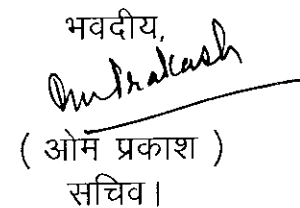 भवदीय,
Om Prakash
( ओम प्रकाश )
सचिव।